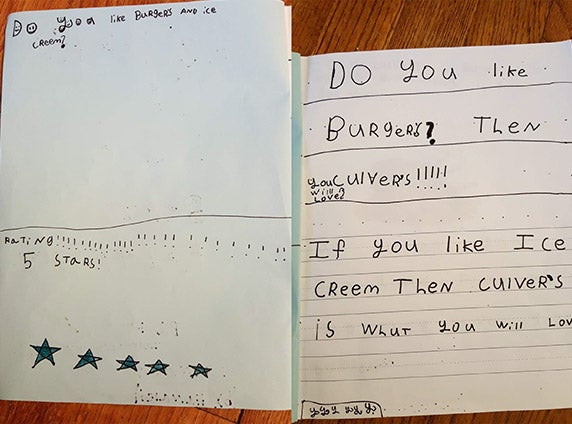 Do you like BURGeRS AND ice
cReem?
RaTiNg!!!!!!!!!!!!!!!!!!!!!!!!!!!!
5 STaRS!
DO YOU like
BURgeRs? THeN
you will love CUlVeR's!!!!!
If you like Ice
CReem THeN CUlVeR's
is WHuT you will Lov